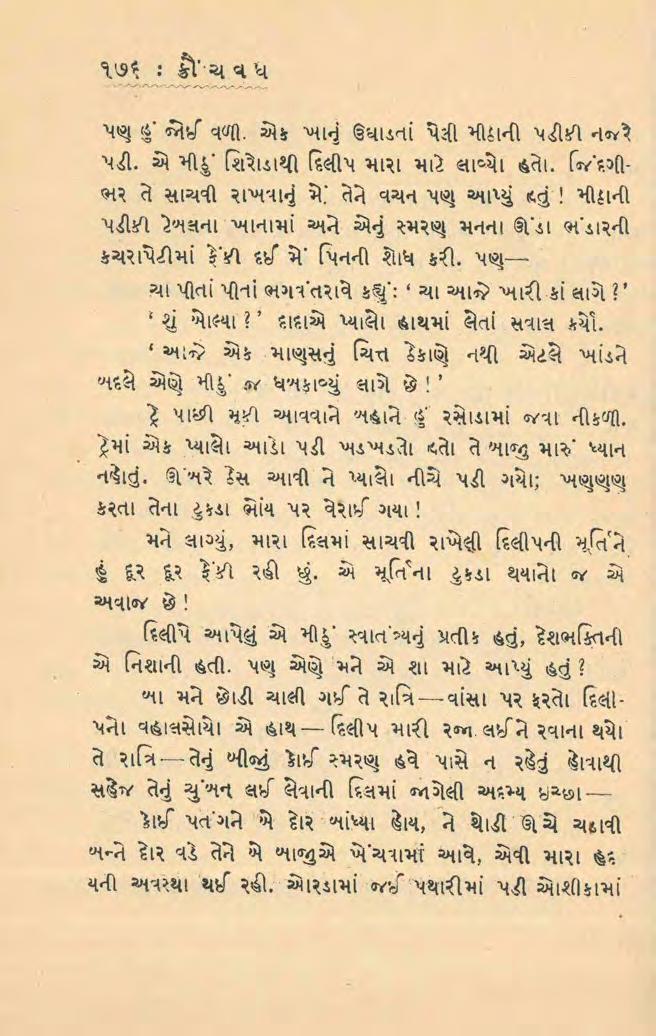 ૧૭૬ : ક્રૌંચવધ
પણ હું જોઈ વળી. એક ખાનું ઉઘાડતાં પેલી મીઠાની પડીકી નજરે
પડી. એ મીઠું શિરોડાથી દિલીપ મારા માટે લાવ્યો હતો. જિંદગી-
ભર તે સાચવી રાખવાનું મેં તેને વચન પણ આપ્યું હતું ! મીઠાની
પડીકી ટેબલના ખાનામાં અને એનું સ્મરણ મનના ઊંડા ભંડારની
કચરાપેટીમાં ફેંકી દઈ મેં પિનની શોધ કરી. પણ—
ચા પીતાં પીતાં ભગવંતરાવે કહ્યું: ‘ ચા આજે ખારી કાં લાગે ?’
‘ શું બોલ્યા ?’ દાદાએ પ્યાલો હાથમાં લેતાં સવાલ કર્યો.
‘ આજે એક માણસનું ચિત્ત ઠેકાણે નથી એટલે ખાંડને
બદલે એણે મીઠું જ ધબકાવ્યું લાગે છે ! ’
ટ્રે પાછી મૂકી આવવાને બહાને હું રસોડામાં જવા નીકળી.
ટ્રેમાં એક પ્યાલો આડો પડી ખડખડતો હતો તે બાજુ મારું ધ્યાન
નહોતું. ઊંબરે ઠેસ આવી ને પ્યાલો નીચે પડી ગયો; ખણણણ
કરતા તેના ટુકડા ભોંય પર વેરાઈ ગયા !
મને લાગ્યું, મારા દિલમાં સાચવી રાખેલી દિલીપની મૂર્તિને
હું દૂર દૂર ફેંકી રહી છું. એ મૂર્તિના ટુકડા થયાનો જ એ
અવાજ છે !
દિલીપે આપેલું એ મીઠું સ્વાતંત્ર્યનું પ્રતીક હતું, દેશભક્તિની
એ નિશાની હતી. પણ એણે મને એ શા માટે આપ્યું હતું ?
બા મને છોડી ચાલી ગઈ તે રાત્રિ — વાંસા પર ફરતો દિલી-
પનો વહાલસોયો એ હાથ — દિલીપ મારી રજા લઈને રવાના થયો
તે રાત્રિ — તેનું બીજું કોઈ સ્મરણ હવે પાસે ન રહેતું હોવાથી
સહેજ તેનું ચુંબન લઈ લેવાની દિલમાં જાગેલી અદમ્ય ઇચ્છા —
કોઈ પતંગને બે દોર બાંધ્યા હોય, ને થોડી ઊંચે ચઢાવી
બન્ને દોર વડે તેને બે બાજુએ ખેંચવામાં આવે, એવી મારા હૃદ
યની અવસ્થા થઈ રહી. ઓરડામાં જઈ પથારીમાં પડી ઓશીકામાં